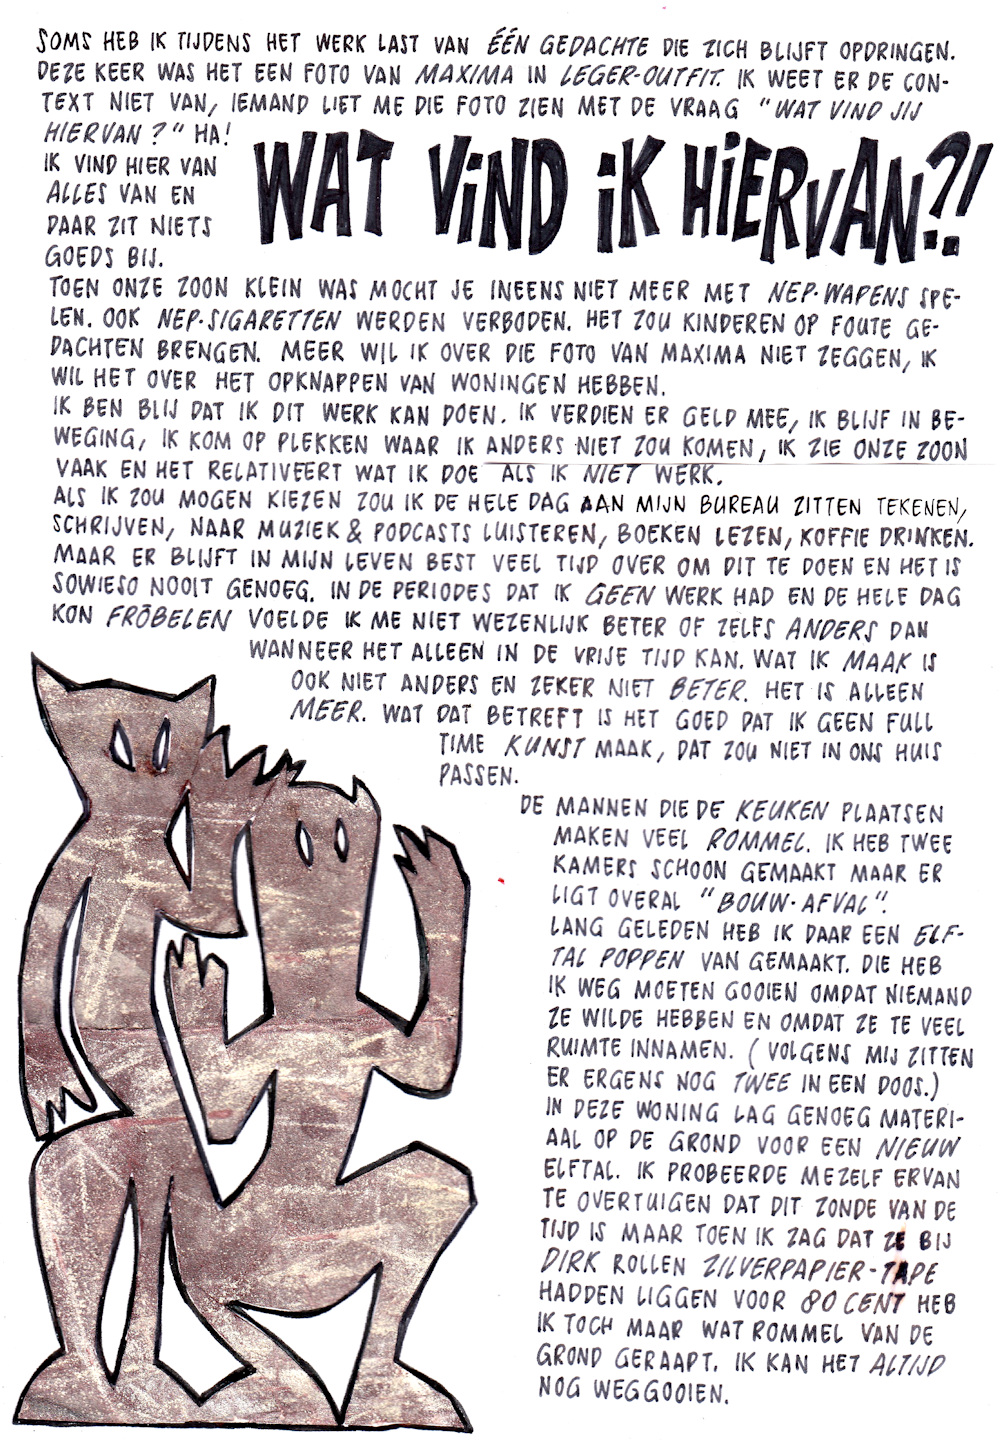 SOMS HEB IK TIJDENS HET WERK LAST VAN ÉÉN GEDACHTE DIE ZICH BLIJFT OPDRINGEN.
DEZE KEER WAS HET EEN FOTO VAN MAXIMA IN LEGER-OUTFIT. IK WEET ER DE CON-
TEXT NIET VAN, IEMAND LIET ME DIE FOTO ZIEN MET DE VRAAG "WAT VIND JIJ
HIERVAN?" HA!
IK VIND HIER VAN
ALLES VAN EN
DAAR ZIT NIETS
GOEDS BIJ.
WAT VIND IK HIERVAN?!
TOEN ONZE ZOON KLEIN WAS MOCHT JE INEENS NIET MEER MET NEP-WAPENS SPE-
LEN. OOK NEP-SIGARETTEN WERDEN VERBODEN. HET ZOU KINDEREN OP FOUTE GE-
DACHTEN BRENGEN. MEER WIL IK OVER DIE FOTO VAN MAXIMA NIET ZEGGEN, IK
WIL HET OVER HET OPKNAPPEN VAN WONINGEN HEBBEN.
IK BEN BLIJ DAT IK DIT WERK KAN DOEN. IK VERDIEN ER GELD MEE, IK BLIJF IN BE-
WEGING, IK KOM OP PLEKKEN WAAR IK ANDERS NIET ZOU KOMEN, IK ZIE ONZE ZOON
VAAK EN HET RELATIVEERT WAT IK DOE ALS IK NIET WERK.
ALS IK ZOU MOGEN KIEZEN ZOU IK DE HELE DAG AAN MIJN BUREAU ZITTEN TEKENEN,
SCHRIJVEN, NAAR MUZIEK & PODCASTS LUISTEREN, BOEKEN LEZEN, KOFFIE DRINKEN.
MAAR ER BLIJFT IN MIJN LEVEN BEST VEEL TIJD OVER OM DIT TE DOEN EN HET IS
SOWIESO NOOIT GENOEG. IN DE PERIODES DAT IK GEEN WERK HAD EN DE HELE DAG
KON FRÖBELEN VOELDE IK ME NIET WEZENLIJK BETER OF ZELFS ANDERS DAN
WANNEER HET ALLEEN IN DE VRIJE TIJD KAN. WAT IK MAAK IS
OOK NIET ANDERS EN ZEKER NIET BETER. HET IS ALLEEN
MEER. WAT DAT BETREFT IS HET GOED DAT IK GEEN FULL
TIME KUNST MAAK, DAT ZOU NIET IN ONS HUIS
PASSEN.
DE MANNEN DIE DE KEUKEN PLAATSEN
MAKEN VEEL ROMMEL. IK HEB TWEE
KAMERS SCHOON GEMAAKT MAAR ER
LIGT OVERAL "BOUW-AFVAL".
LANG GELEDEN HEB IK DAAR EEN ELF-
TAL POPPEN VAN GEMAAKT. DIE HEB
IK WEG MOETEN GOOIEN OMDAT NIEMAND
ZE WILDE HEBBEN EN OMDAT ZE TE VEEL
RUIMTE INNAMEN. (VOLGENS MIJ ZITTEN
ER ERGENS NOG TWEE IN EEN DOOS.)
IN DEZE WONING LAG GENOEG MATERI-
AAL OP DE GROND VOOR EEN NIEUW
ELFTAL. IK PROBEERDE MEZELF ERVAN
TE OVERTUIGEN DAT DIT ZONDE VAN DE
TIJD IS MAAR TOEN IK ZAG DAT ZE BIJ
DIRK ROLLEN ZILVERPAPIER-TAPE
HADDEN LIGGEN VOOR 80 CENT HEB
IK TOCH MAAR WAT ROMMEL VAN DE
GROND GERAAPT. IK KAN HET ALTIJD
NOG WEGGOOIEN.